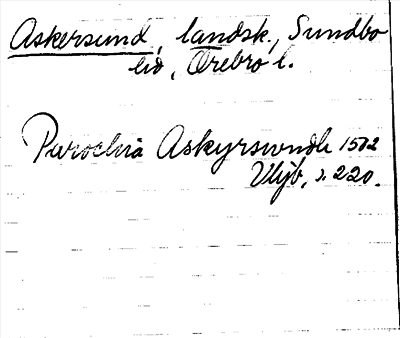 Askersund, landsk., Sundbo
hd, Örebro l.
Parochia Askyrswndh 1512
Vlijb, s. 220.